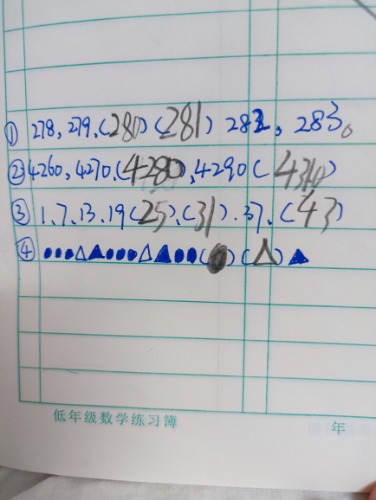 ① 278、279、(280)(281) 282、283。
② 4260、4270、(4280)、4290(4310)
③ 1、7、13、19(25)、(31)、37、(43)
④ ●●●△▲●●●△▲●●(●)(△)▲
低年级数学练习簿 年